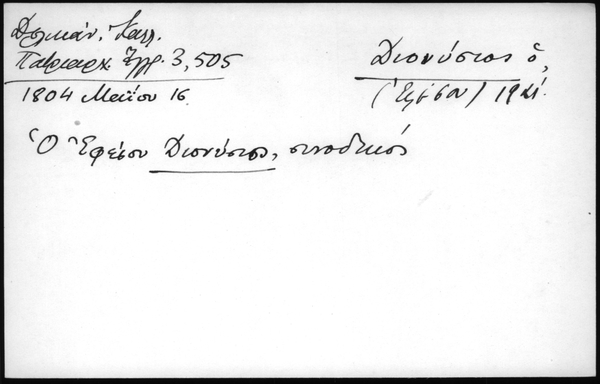 Δελικάν, Καλλ.
Πατριαρχ. Ἔγγρ. 3, 505
1804 Μαΐου 16
Διονύσιος ὁ,
(Ἐφέσου) 1821.
Ὁ Ἐφέσου Διονύσιος, συνοδικός